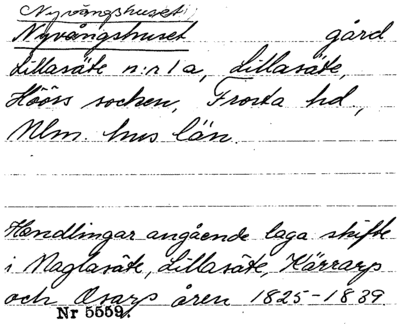 Nyvångshuset
Nyvångshuset gård
Lillasäte n:r 1 a, Lillasäte,
Hööss socken, Frosta hd,
Mlm. hus län.
Handlingar angående laga skifte
i Maglasäte, Lillasäte, Kärrarp
och Osarp åren 1825-1839.
Nr 5559.